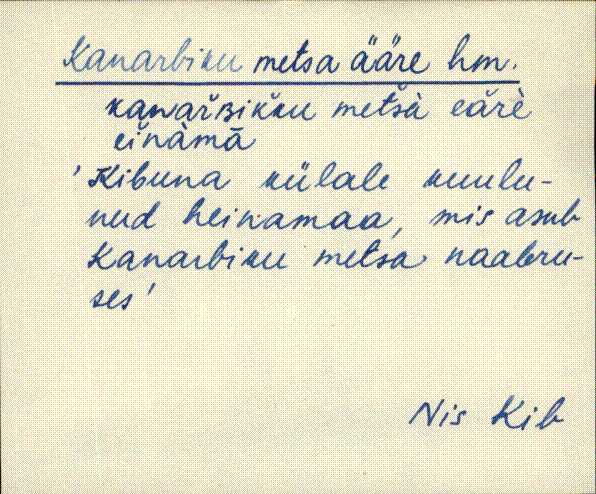 Kanarbiku metsa ääre hm.
kanařʙikku metsà eärè
eìnàmā
'Kibuna külale kuulu-
nud heinamaa, mis asub
Kanarbiku metsa naabru-
ses'
Nis Kib